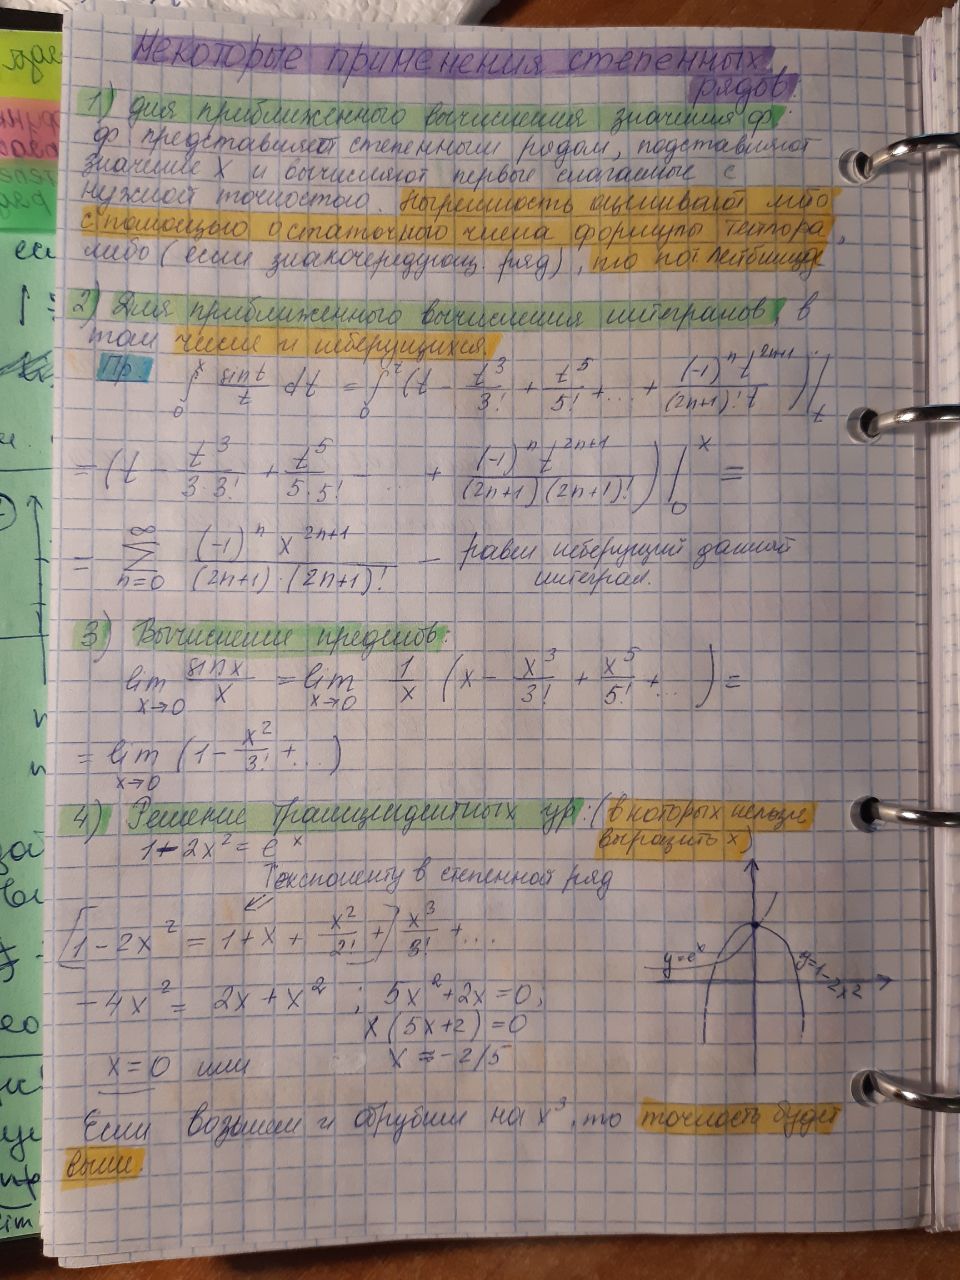 Некоторые применения степенных
рядов:
1) для приближенного вычисления значения ф.
ф представляют степенным рядом, подставляют
значение X и вычисляют первые слагаемые с
нужной точностью. Погрешность оценивают либо
с помощью остаточного члена формулы Тейлора,
либо (если знакочередующ. ряд), то по т Лейбница
2) Для приближенного вычисления интегралов, в
том числе и неберущихся.
Пр. ∫₀ˣ sint/t dt = ∫₀ˣ (t - t³/3! + t⁵/5! + ... + (-1)ⁿ t²ⁿ⁺¹/(2n+1)! t)/t
= (t - t³/3·3! + t⁵/5·5! ... + (-1)ⁿ t²ⁿ⁺¹/(2n+1)(2n+1)!) |₀ˣ =
= ∑ₙ₌₀^∞ (-1)ⁿ x²ⁿ⁺¹/(2n+1)·(2n+1)! - равен неберущий данный
интеграл.
3) Вычисление пределов:
lim x→0 sinx/x = lim x→0 1/x (x - x³/3! + x⁵/5! + ...) =
= lim x→0 (1 - x²/3! + ...)
4) Решение трансцидентных ур.: (в которых нельзя
выразить x)
1-2x² = eˣ
экспоненту в степенной ряд
[1-2x² = 1+x+ x²/2! +] x³/3! + ...
y=eˣ
y=1-2x2
-4x² = 2x+x² ; 5x²+2x=0;
x(5x+2)=0
x=0 или x=-2/5
Если возьмем и обрубим на x³, то точность будет
выше.